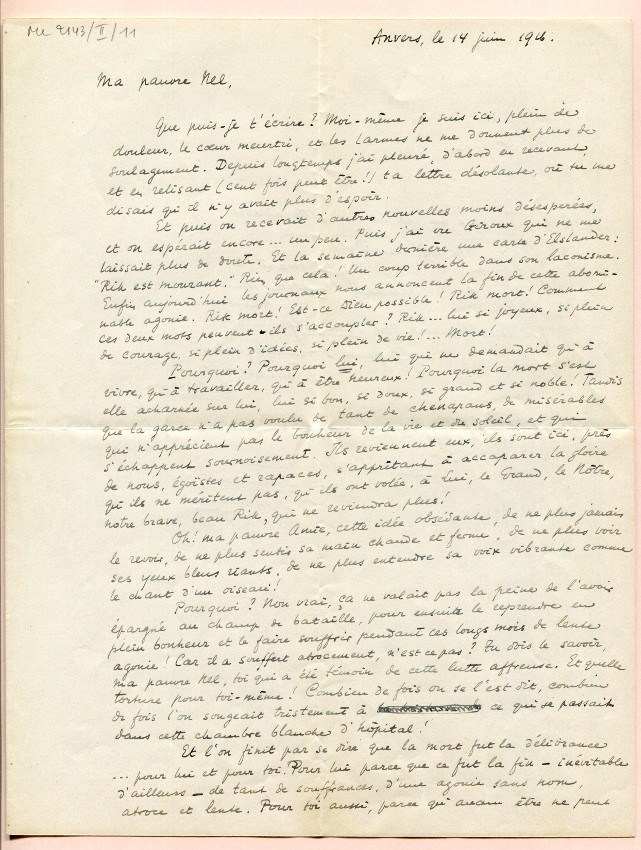 Mℓ 2143/II/11
Anvers, le 14 juin 1916.
Ma pauvre Nel,
Que puis-je t'écrire? Moi-même je suis ici, plein de
douleur, le cœur meurtri, et les larmes ne me donnent plus de
soulagement. Depuis longtemps j'ai pleuré, d'abord en recevant
et en relisant (cent fois peut être!) ta lettre désolante, où tu me
disais qu'il n'y avait plus d'espoir.
Et puis on recevait d'autres nouvelles moins désespérées,
et on espérait encore... un peu. Puis j'ai vu Giroux qui ne me
laissait plus de doute. Et la semaine dernière une carte d'Elslander:
"Rik est mourant." Rien que cela! Un coup terrible dans son laconisme.
Enfin aujourd'hui les journaux nous annoncent la fin de cette abomi-
nable agonie. Rik mort! Est-ce Dieu possible! Rik mort! Comment
ces deux mots peuvent-ils s'accoupler? Rik... lui si joyeux, si plein
de courage, si plein d'idées, si plein de vie!... Mort!
Pourquoi? Pourquoi lui, lui qui ne demandait qu'à
vivre, qu'à travailler, qu'à être heureux! Pourquoi la mort s'est
elle acharnée sur lui, lui si bon, si doux, si grand et si noble! Tandis
que la garce n'a pas voulu de tant de chenapans, de misérables
qui n'apprécient pas le bonheur de la vie et du soleil, et qui
s'échappent sournoisement. Ils reviennent eux, ils sont ici, près
de nous, égoïstes et rapaces, s'apprêtant à accaparer la gloire
qu'ils ne méritent pas, qu'ils ont volée, à Lui, le Grand, le Nôtre,
notre brave, beau Rik, qui ne reviendra plus!
Oh! ma pauvre Amie, cette idée obsédante, de ne plus jamais
le revoir, de ne plus sentir sa main chaude et ferme, de ne plus voir
ses yeux bleus riants, de ne plus entendre sa voix vibrante comme
le chant d'un oiseau!
Pourquoi? Non vrai, ça ne valait pas la peine de l'avoir
épargné au champ de bataille, pour ensuite le reprendre en
plein bonheur et le faire souffrir pendant ces longs mois de lente
agonie! Car il a souffert atrocement, n'est ce pas? Tu dois le savoir,
ma pauvre Nel, toi qui a été témoin de cette lutte affreuse. Et quelle
torture pour toi-même! Combien de fois on se l'est dit, combien
de fois l'on songeait tristement à ce qui se passait
dans cette chambre blanche d'hôpital!
Et l'on finit par se dire que la mort fut la délivrance
... pour lui et pour toi! Pour lui parce que ce fut la fin - inévitable
d'ailleurs - de tant de souffrances, d'une agonie sans nom,
atroce et lente. Pour toi aussi, parce qu'aucun être ne peut